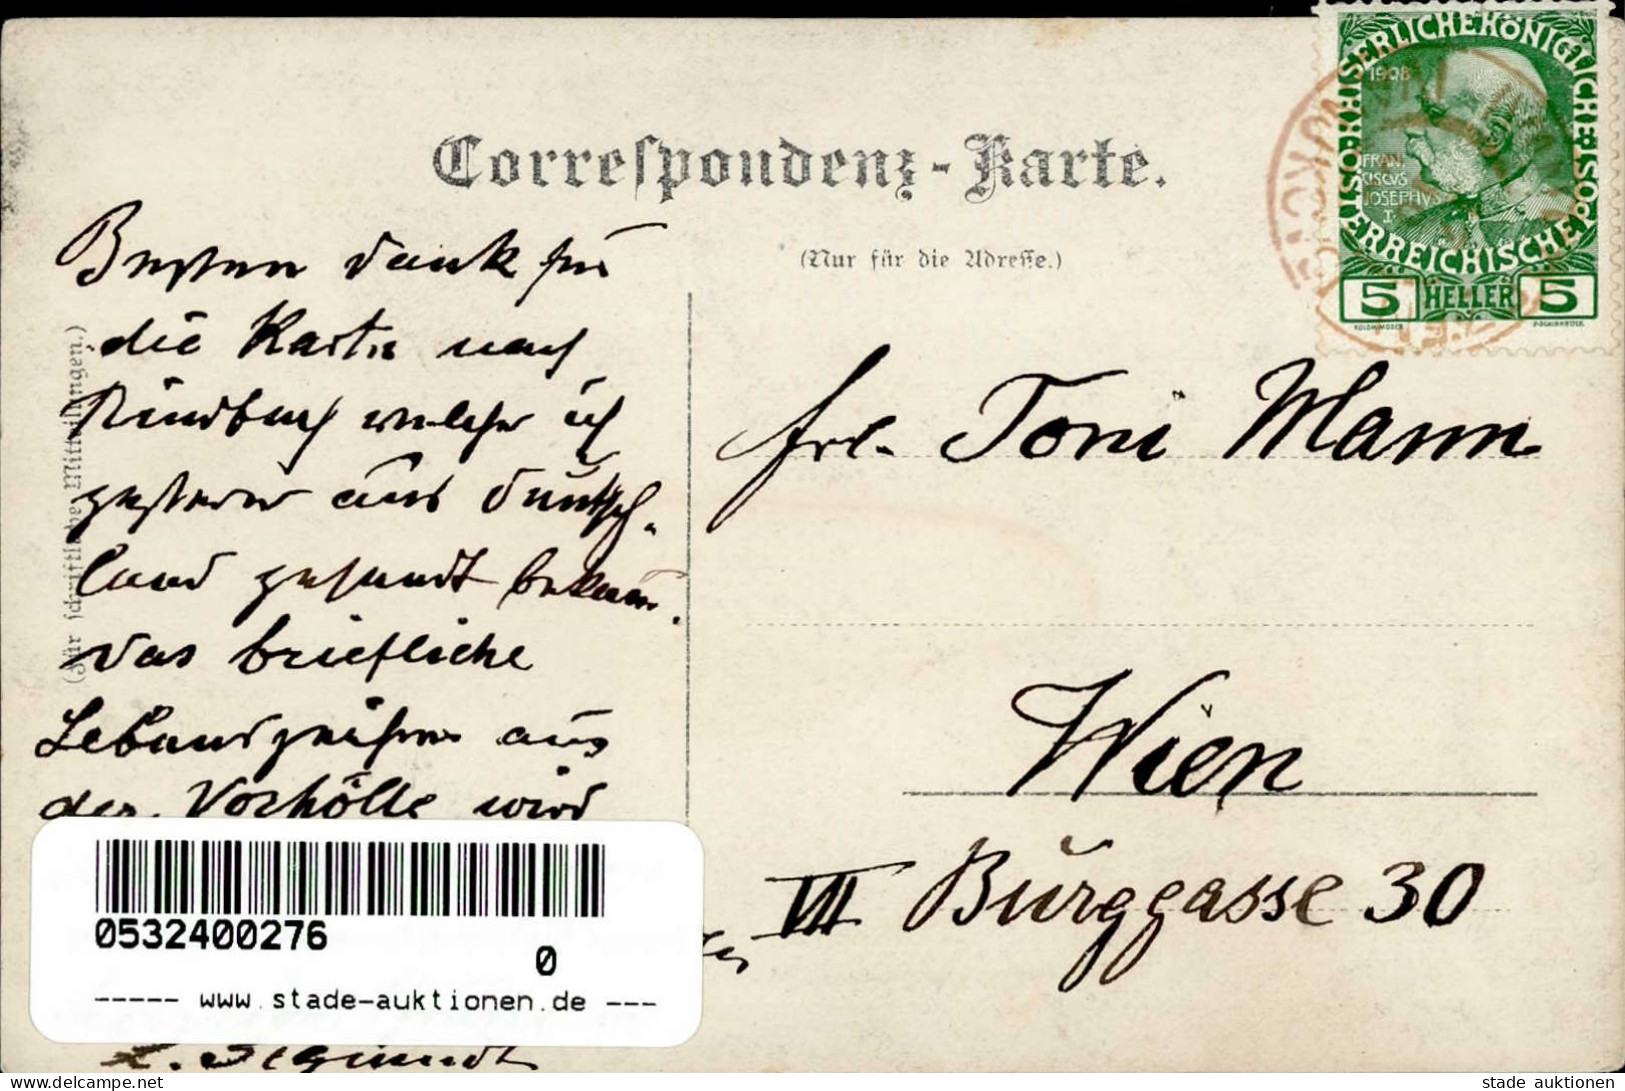 Correspondenz-Karte.
(Nur für die Adresse.)
(Für schriftliche Mitteilungen.)
KAISERLICHE KÖNIGLICHE
ÖSTERREICHISCHE POST
1908
FRAN
CISCVS
IOSEPHVS
I
5 HELLER 5
Besten Dank für
die Karte nach
Rindbach welche ich
gestern aus Deutsch-
land gesandt bekam.
Das briefliche
Lebenszeichen aus
der Vorhölle wird
Frl. Toni Mann
Wien
VII Burggasse 30
0532400276
0
----- www.stade-auktionen.de ---
www.delcampe.net
stade auktionen